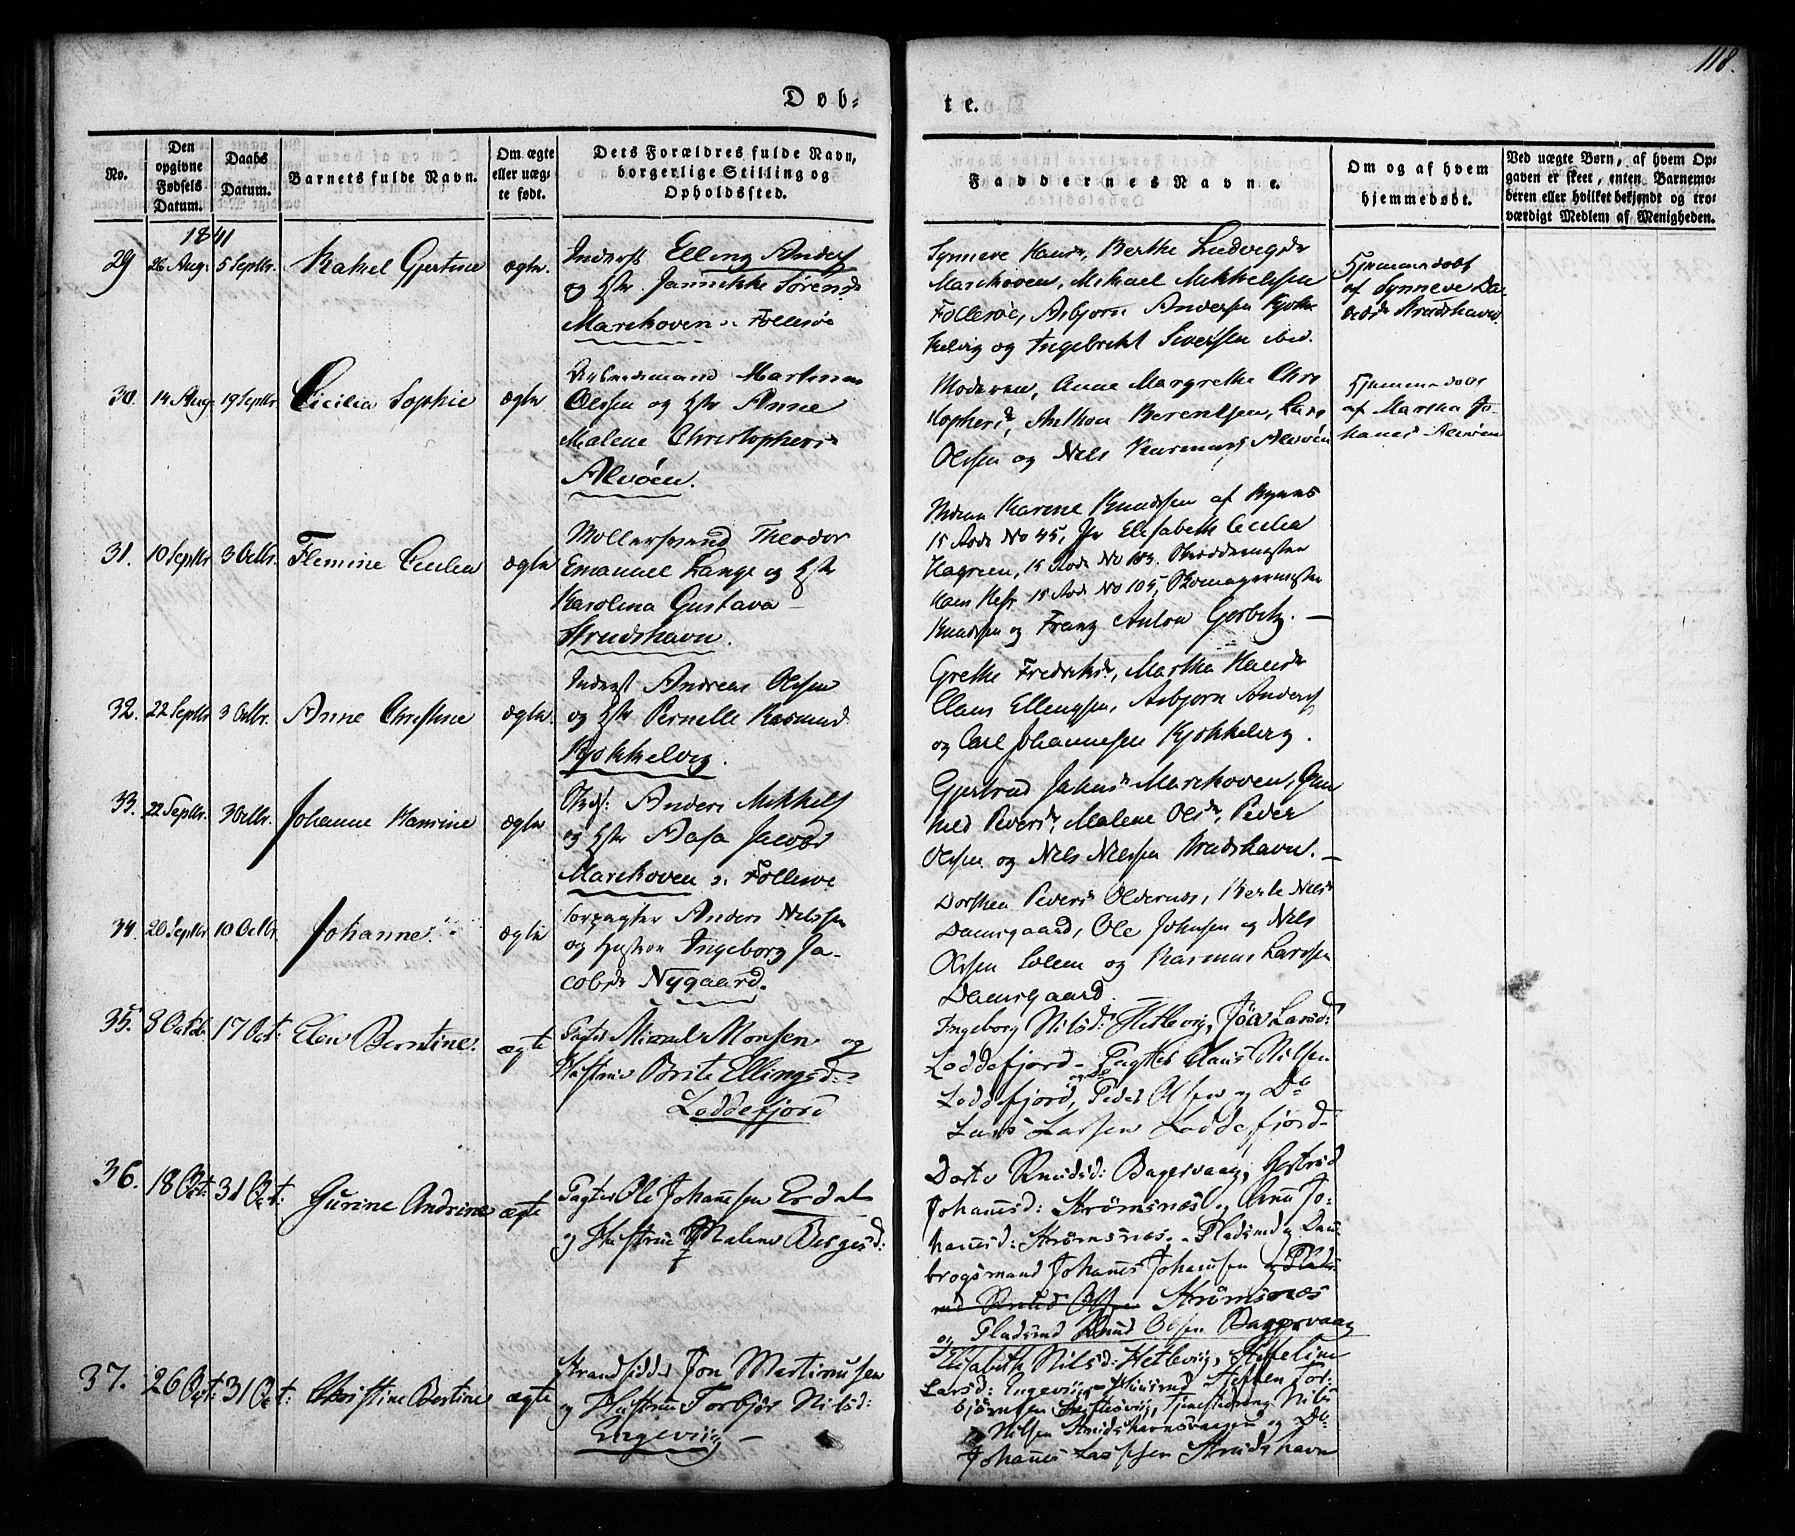 118.
Døb=
te.
No.
Den
opgivne
Fødsels
Datum.
Daabs
Datum.
Barnets fulde Navn.
Om ægte
eller uæg-
te født.
Dets Forældres fulde Navn,
borgerlige Stilling og
Opholdssted.
Faddernes Navne.
Om og af hvem
hjemmedøbt.
Ved uægte Børn, af hvem Op-
gaven er skeet, enten Barnemo-
deren eller hvilket bekjendt og tro-
værdigt Medlem af Menigheden.
1841
29 26 Aug: 5 Septbr. Rakel Gjertine ægte.
Inderst Elling Anders
og Hstr Jannikke Sørensd
Marikoven Follesøe
Synneve Hansd, Berthe Ludvigsd
Marikoven, Mikael Mikkelssen
Follesøe, Asbjørn Andersen Kjøk
kelvig og Ingebrikt Siversen ibid.
Hjemmedøbt
af Synneve Da-
vidsd Strudshavn
30. 14 Aug. 19 Septbr. Cicilia Sophie ægte
Martinus
Olssen og Hstr Anne
Malene Christophers
Alvøen.
Moderen, Anne Margrethe Chri
stophersd, Anthon Berentsen, Lars
Olssen og Nels Rasmuss Alvøen
Hjemmedøbt
af Martha Jo-
hannesd Alvøen
31. 10 Septbr 3 Octbr. Flemine Cecilia ægte
Møllersvend Theodor
Emanuel Lange og Hstr
Karolina Gustava
Strudshavn.
Karene Knudssen af Byens
15 Rode No 45, Elisabeth Cecilia
Hagreen, 15 Rode No 103. Skræddermester
15 Rode No 105, Skomagermester
Knudssen og Franz Anton Gerbitz.
32. 22 Septbr 3 Octbr. Anne Christine ægte.
Inderst Andreas Olssen
og Hstr Pernille Rasmusd
Kjøkkelvig.
Grethe Fredriksd, Martha Hansd
Claus Ellingsen, Asbjørn Anders
og Carl Johannesen Kjøkkelvig.
33. 22 Septbr. 3 Octbr. Johanne Hansine ægte
Anders Mikkels
og Hstr Aasa Jacobsd
Marikoven Follesøe
Gjertrud Jakobsd Marikoven, Gun
hild Pedersd, Malene Olsd, Peder
Olssen og Nels Nelssen Strudshavn.
34. 20 Septbr 10 Octbr. Johanne. ægte
Forpagter Anders Nelssen
og Hustroe Ingeborg Ja-
cobsd Nygaard.
Dorthea Pedersd Oldernæs, Berte Nelsd
Damsgaard, Ole Johnsen og Nels
Olssen Solem og Rasmus Larssen
Damsgaard.
35. 3 Octob. 17 Oct: Elen Berntine. ægte
Monsen og
Hustrue Brite Ellingsd:
Loddefjord
Ingeborg Nilsd: Hetlevig, Larsd:
Loddefjord - Pagter Claus Nilsen
Loddefjord, Peder Olsen og Do
Lars Larsen Loddefjord -
36. 18 Oct: 31 Oct: Gurine Andrine ægte
Pagter Ole Johansen Erdal
og Hustrue Malene Børgesd:
Dorte Knudsd: Bagersvaag, Gertrud
Johannsd: Strømsnæs og Anne Jo:
hannsd: Strømsnæs. - Pladsmd og Dan
brogsmand Johannes Johansen og Plads
md Knud Olsen Strømsnæs
og Pladsmd Knud Olsen Bagersvaag
37. 26 Oct: 31 Oct: Christine Bertine ægte
Strandsidder Jon Martinusen
og Hustrue Torbjør Nilsd:
Engevig -
Elisabeth Nilsd: Hetlevig,
Larsd: Engevig Steffen Tor:
bjørnsen Nils
Nilsen Strudshavnsvaagen og Do
Johannes Larssen Strudshavn